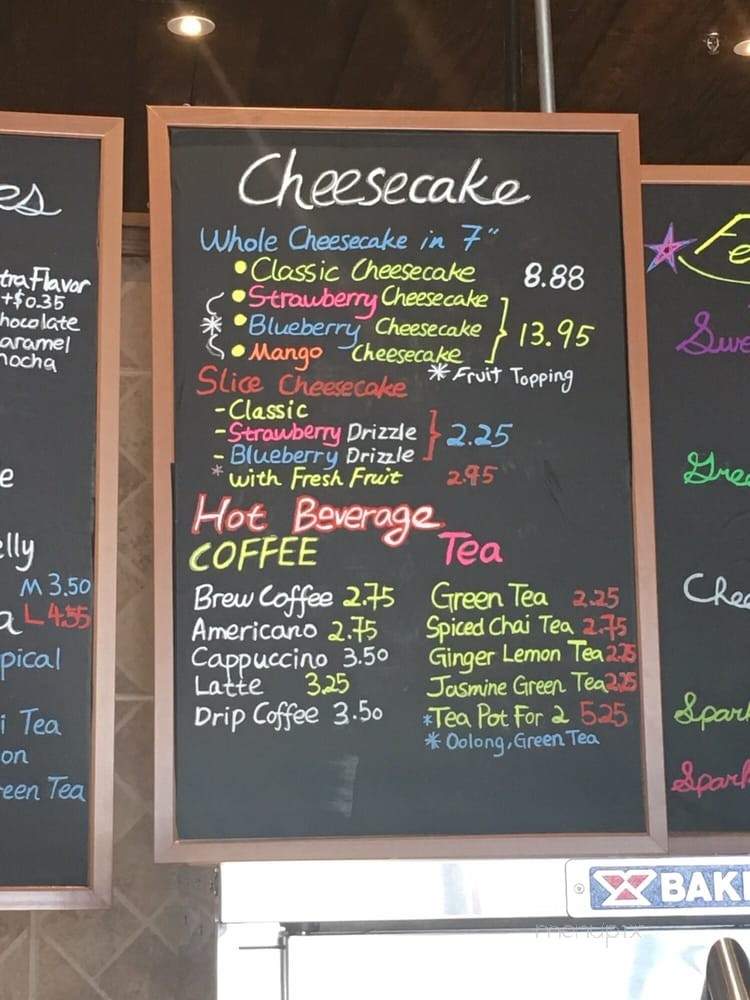 es
tra Flavor
+$0.35
hocolate
aramel
mocha
e
elly
M 3.50
a L 4.55
pical
i Tea
on
een Tea
Cheesecake
Whole Cheesecake in 7"
• Classic Cheesecake 8.88
• Strawberry Cheesecake
* • Blueberry Cheesecake } 13.95
• Mango Cheesecake
* Fruit Topping
Slice Cheesecake
- Classic
- Strawberry Drizzle } 2.25
- Blueberry Drizzle
* with Fresh Fruit 2.95
Hot Beverage
COFFEE
Brew Coffee 2.75
Americano 2.75
Cappuccino 3.50
Latte 3.25
Drip Coffee 3.50
Tea
Green Tea 2.25
Spiced Chai Tea 2.75
Ginger Lemon Tea
Jasmine Green Tea 2.25
* Tea Pot For 2 5.25
* Oolong, Green Tea
Fe
Swe
Gree
Chee
Spark
Spark
BAK
menupix